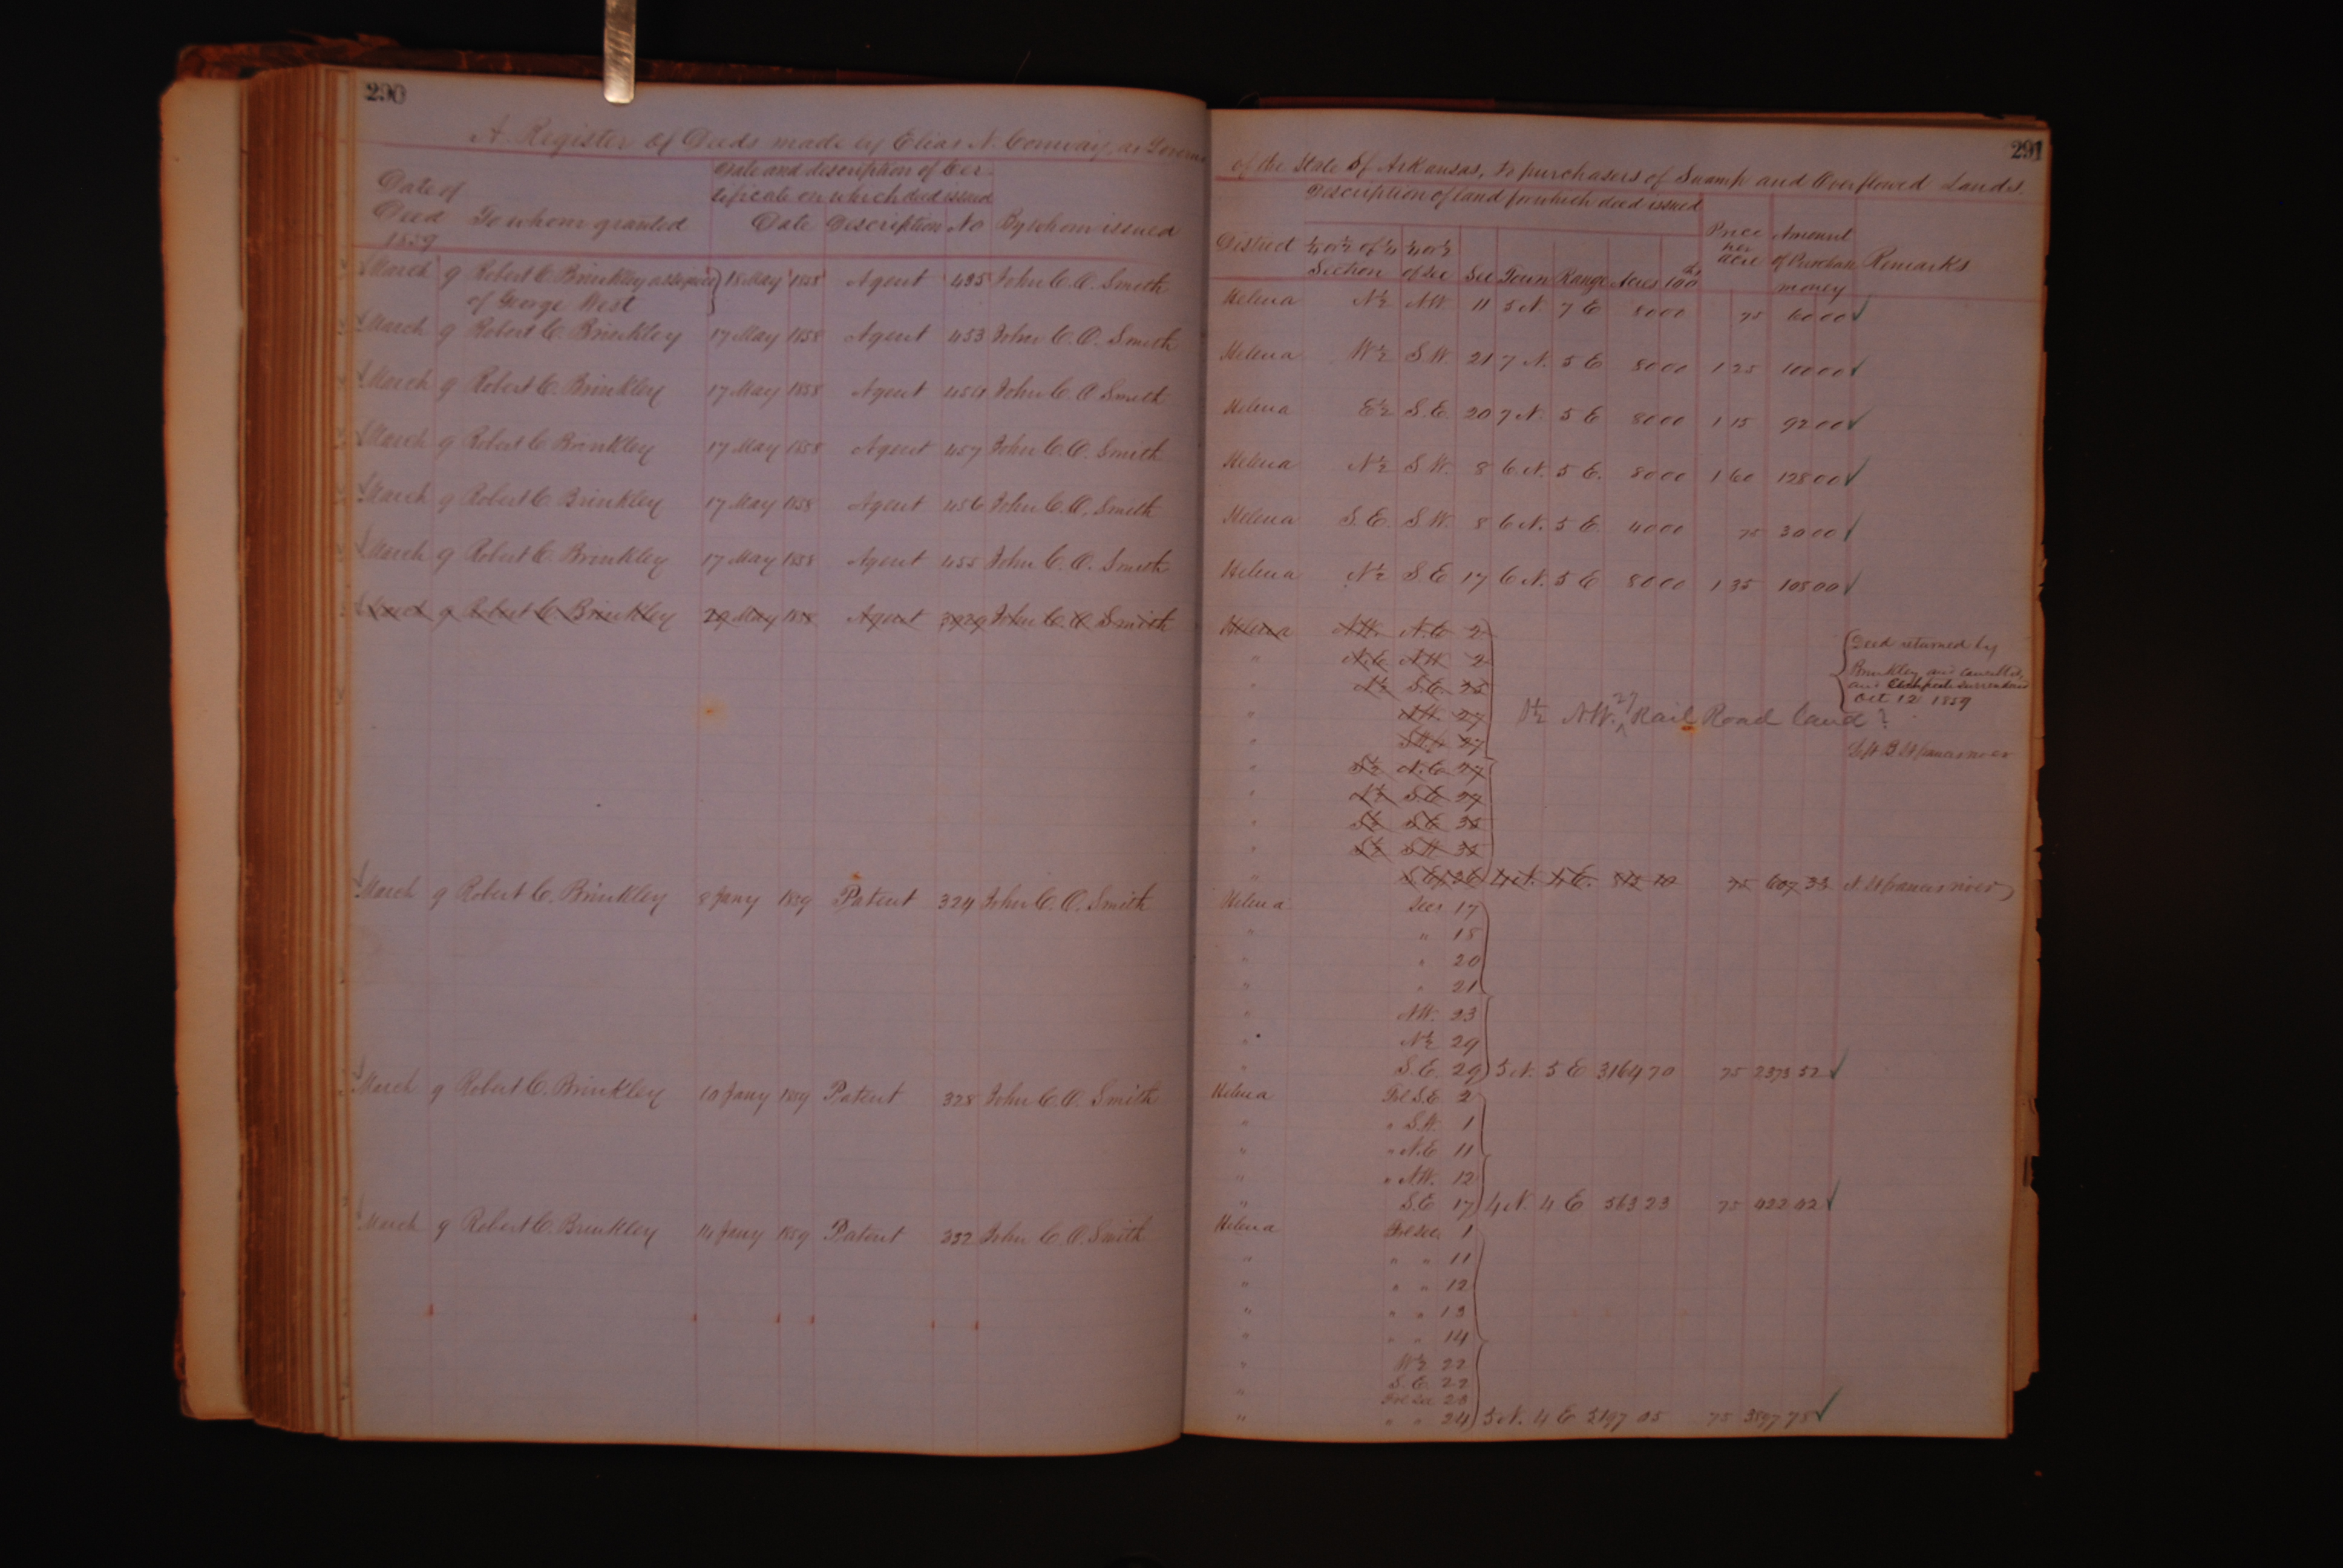 290
A Register of Deeds made by Elias N. Conway, as Govern
Date of Deed 1859 To whom granted Date and description of Cer- tificate on which deed issued Date Description No By whom issued
March 9 Robert C. Brinkley assignee } 18 May 1858 Agent 435 John C. O. Smith
of George West
March 9 Robert C. Brinkley 17 May 1858 Agent 453 John C. O. Smith
March 9 Robert C. Brinkley 17 May 1858 Agent 454 John C. O. Smith
March 9 Robert C. Brinkley 17 May 1858 Agent 457 John C. O. Smith
March 9 Robert C. Brinkley 17 May 1858 Agent 456 John C. O. Smith
March 9 Robert C. Brinkley 17 May 1858 Agent 455 John C. O. Smith
March 9 Robert C. Brinkley 29 May 1858 Agent John C. O. Smith
March 9 Robert C. Brinkley 8 Jany 1859 Patent 324 John C. O. Smith
March 9 Robert C. Brinkley 10 Jany 1859 Patent 328 John C. O. Smith
March 9 Robert C. Brinkley 14 Jany 1859 Patent 332 John C. O. Smith
291
of the State of Arkansas, to purchasers of Swamp and Overflowed Lands.
Description of land for which deed issued
District ¼ or ½ of ¼ Section ¼ or ½ of Sec Sec Town Range Acres 100ths Price per acre Amount of Purchase money Remarks
Helena N½ N.W. 11 5 N. 7 E 80 00 75 60 00 ✓
Helena W½ S.W. 21 7 N. 5 E 80 00 1 25 100 00 ✓
Helena E½ S.E. 20 7 N. 5 E 80 00 1 15 92 00 ✓
Helena N½ S.W. 8 6 N. 5 E. 80 00 1 60 128 00 ✓
Helena S.E. S.W. 8 6 N. 5 E. 40 00 75 30 00 ✓
Helena N½ S.E 17 6 N. 5 E 80 00 1 35 108 00 ✓
Helena N.W. N.E 2
" N.E N.W 2 { Deed returned by
" N½ S.E. Brinkley and cancelled,
" N.W. 27 and Certificate surrendered
Oct 12 1859
N.W. 27 Rail Road land?
" 27
St francis river
" S½ N.E 27
" N½ S.E 27
" S½ S.E 35
" S½ S.W 35
" 26 4 N. 4 E. 75 607 33 St francis river
Helena Secs 17
" " 18
" " 20
" " 21
" N.W. 23
" N½ 29
" S.E. 29 5 N. 5 E 3164 70 75 2373 52 ✓
Helena Frl S.E 2
" " S.W. 1
" " N.E 11
" " N.W. 12
" S.E 17 4 N. 4 E 563 23 75 422 42 ✓
Helena Frl Sec. 1
" " " 11
" " " 12
" " " 13
" " " 14
" W½ 22
S.E. 22
" Frl Sec 23
" " " 24 5 N. 4 E 75 ✓